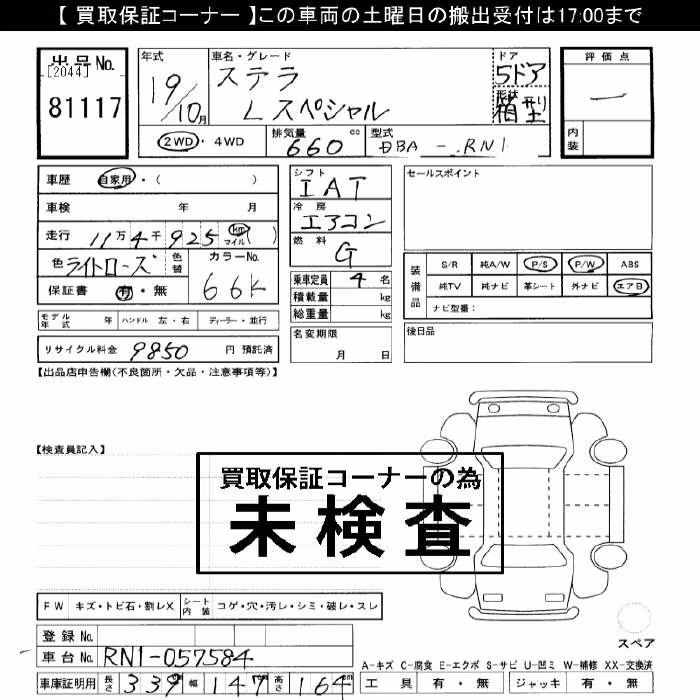 【 買取保証コーナー 】この車両の土曜日の搬出受付は17:00まで
出品No.
[2044]
81117
年式
19/10月
車名・グレード
ステラ
L スペシャル
ドア
5ドア
形状
箱型
評価点
一
内装
2WD・4WD
排気量
660 cc
型式
DBA - RN1
車歴 自家用・( )
車検 年 月
走行 11万4千925 km マイル ( )
色 ライトローズ 色替 カラーNo.
66K
保証書 有・無
シフト
IAT
冷房
エアコン
燃料
G
乗車定員 4 名
積載量 kg
総重量 kg
名変期限
月 日
セールスポイント
装備品
S/R 純A/W P/S P/W ABS
純TV 純ナビ 革シート 外ナビ エアB
ナビ型番:
後日品
モデル年式 年 ハンドル 左・右 ディーラー・並行
リサイクル料金 9850 円 預託済
【出品店申告欄(不良箇所・欠品・注意事項等)】
【検査員記入】
買取保証コーナーの為
未検査
FW キズ・トビ石・割レX シート内装 コゲ・穴・汚レ・シミ・破レ・スレ
登録No.
車台No. RN1-057584
車庫証明用 長さ 339 幅 147 高さ 164
スペア
A-キズ C-腐食 E-エクボ S-サビ U-凹ミ W-補修 XX-交換済
工具 有・無 ジャッキ 有・無